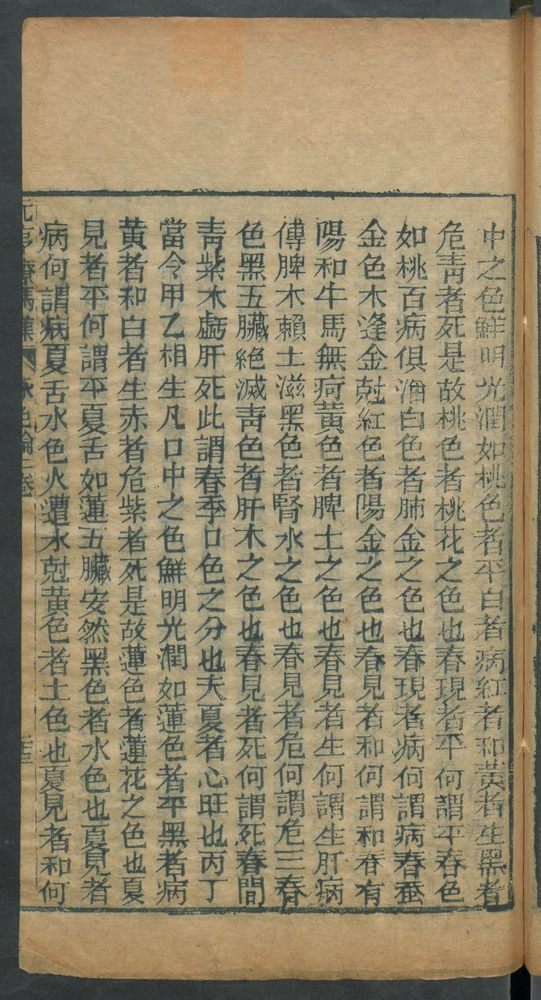 中之色鮮明光潤如桃色者平白者病紅者和黃者生黑者
危靑者死是故桃色者桃花之色也春現者平何謂平春色
如桃百病俱消白色者肺金之色也春現者病何謂病春蚕
金色木逢金尅紅色者陽金之色也春見者和何謂和春有
陽和牛馬無疴黃色者脾土之色也春見者生何謂生肝病
傳脾木賴土滋黑色者腎水之色也春見者危何謂危三春
色黑五臟絕滅靑色者肝木之色也春見者死何謂死春間
靑紫木虧肝死此謂春季口色之分也夫夏者心旺也丙丁
當令甲乙相生凡口中之色鮮明光潤如蓮色者平黑者病
黃者和白者生赤者危紫者死是故蓮色者蓮花之色也夏
見者平何謂平夏舌如蓮五臟安然黑色者水色也夏見者
病何謂病夏舌水色火遭水尅黃色者土色也夏見者和何
元亨療馬集 脉色論一卷 三